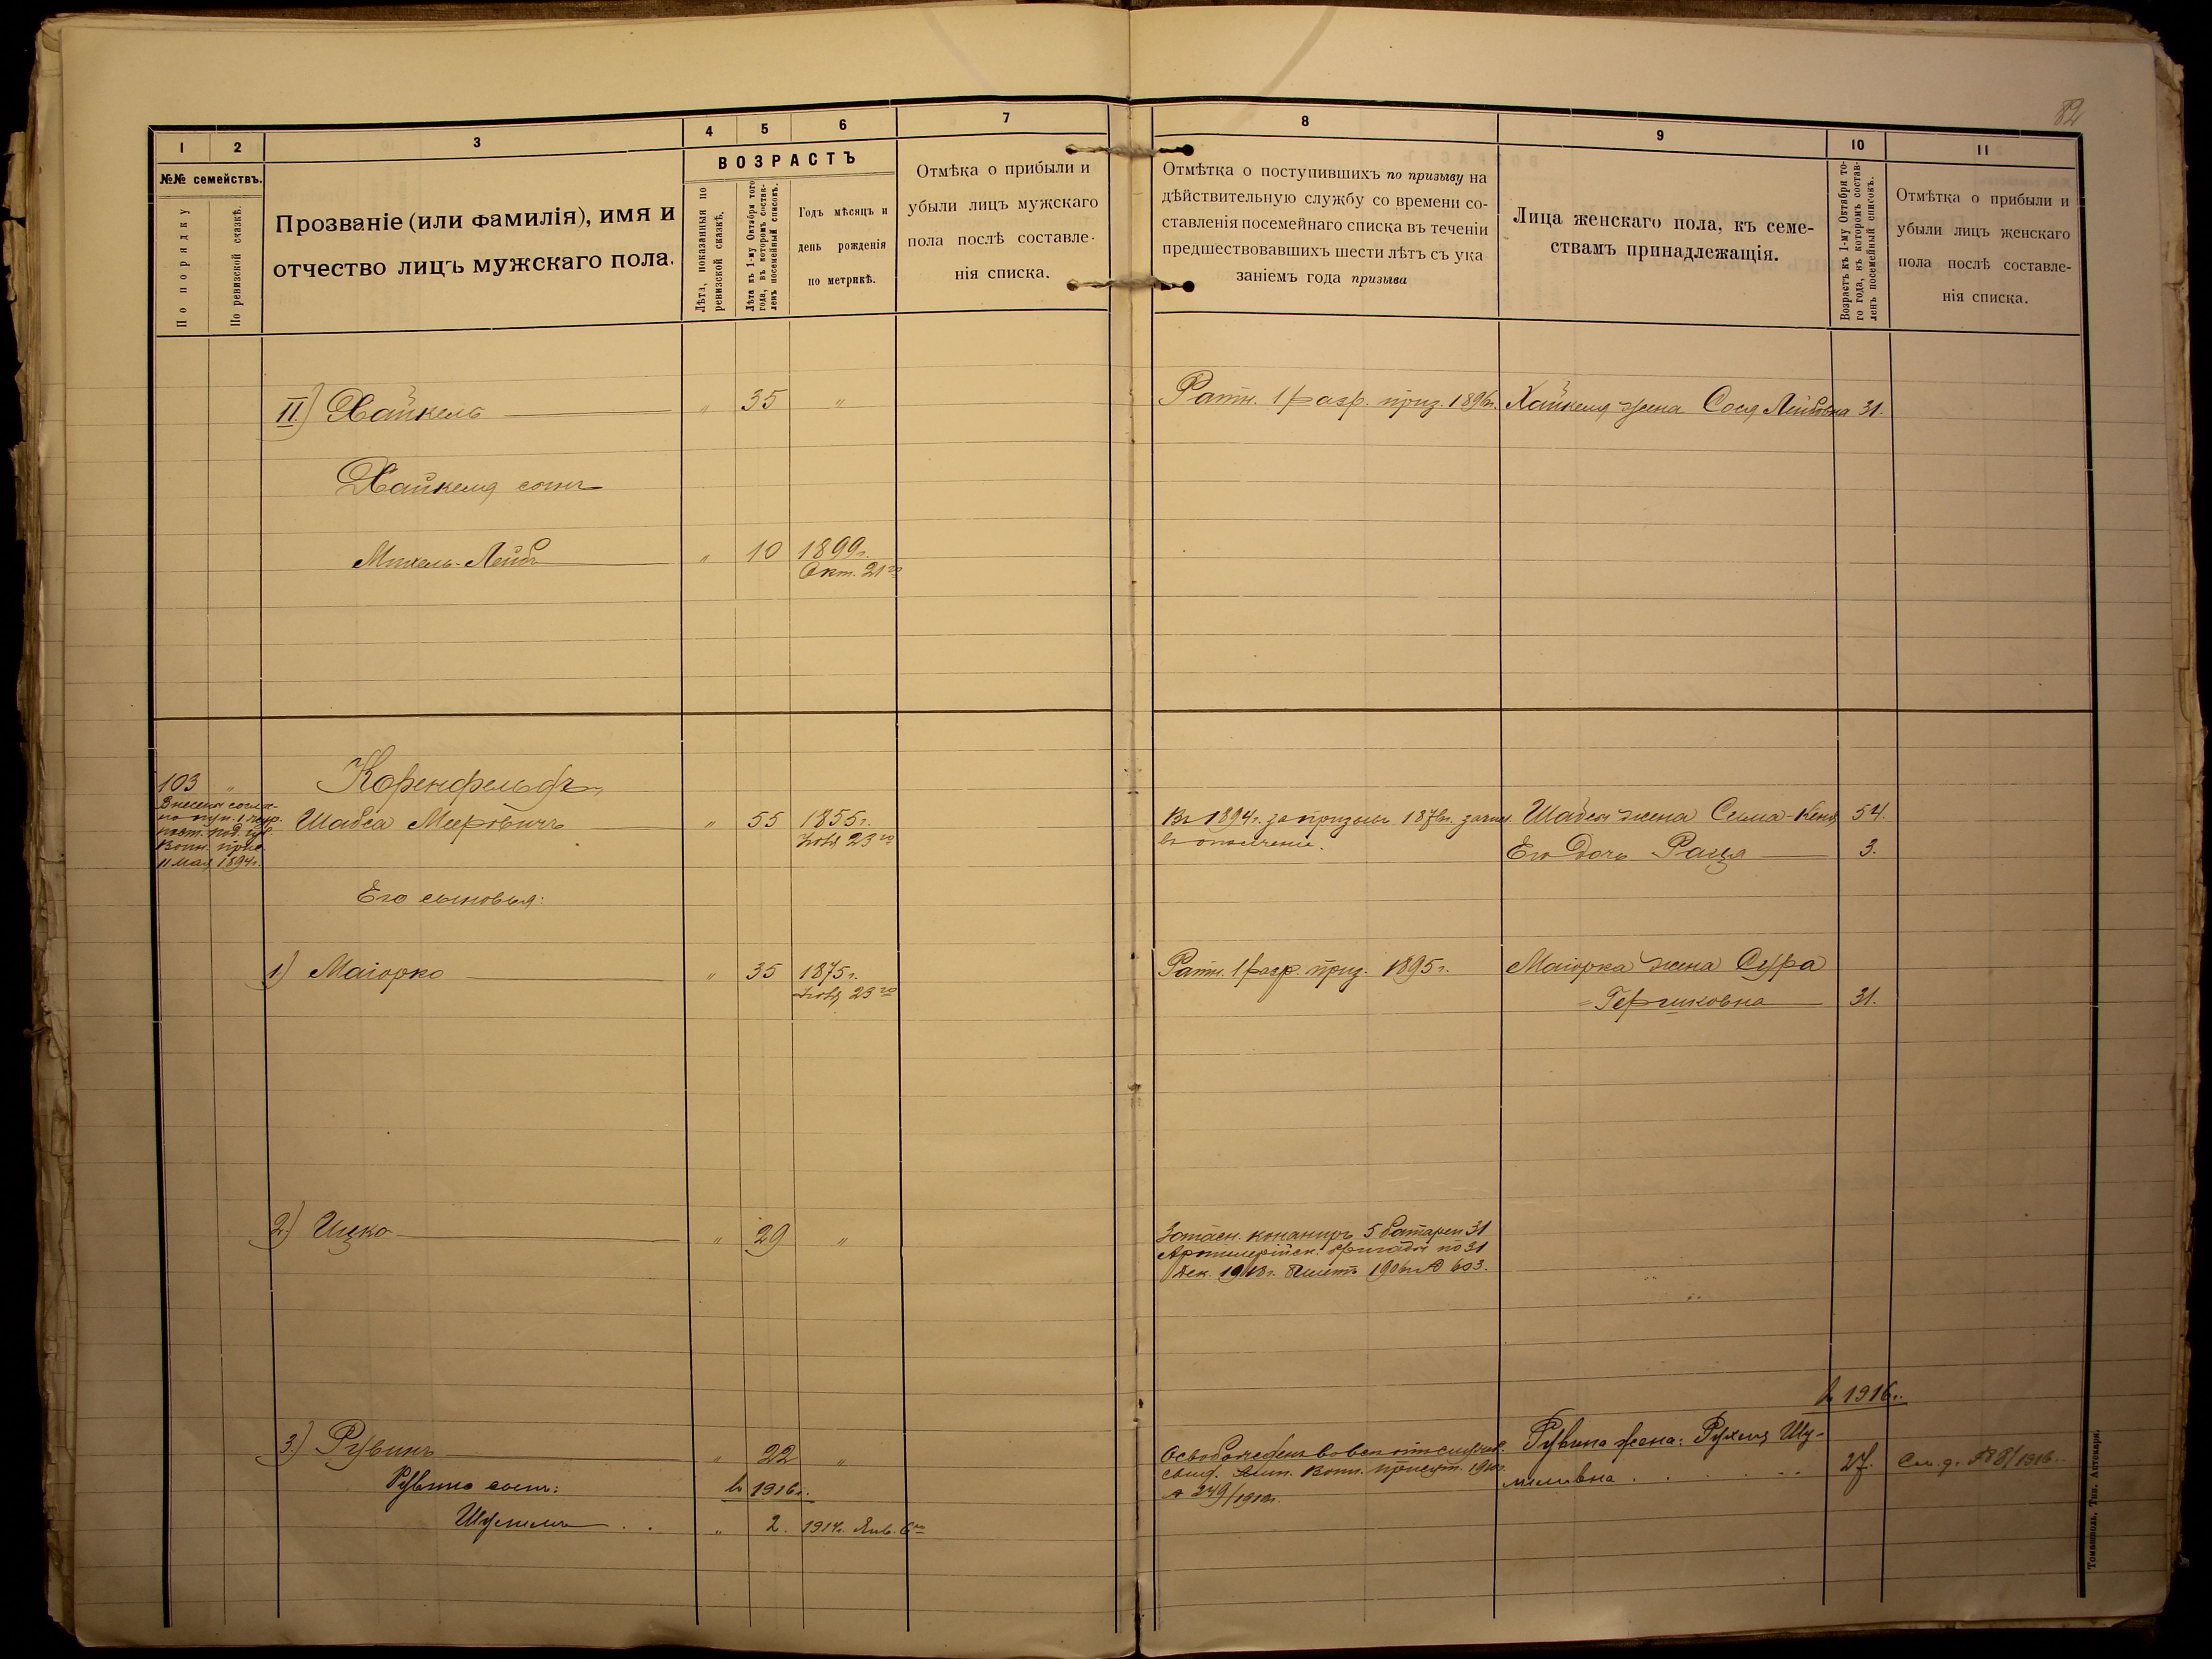 82
1 2 3 4 5 6 7
№№ семействъ.
По порядку
По ревизской сказкѣ.
Прозваніе (или фамилія), имя и
отчество лицъ мужскаго пола.
ВОЗРАСТЪ
Лѣта, показанныя по
ревизской сказкѣ,
Лѣта къ 1-му Октября того
года, въ которомъ состав-
ленъ посемейный списокъ.
Годъ мѣсяцъ и
день рожденія
по метрикѣ.
Отмѣка о прибыли и
убыли лицъ мужскаго
пола послѣ составле-
нія списка.
8 9 10 11
Отмѣтка о поступившихъ по призыву на
дѣйствительную службу со времени со-
ставленія посемейнаго списка въ теченіи
предшествовавшихъ шести лѣтъ съ ука
заніемъ года призыва
Лица женскаго пола, къ семе-
ствамъ принадлежащія.
Возрастъ къ 1-му Октября то-
го года, въ которомъ состав-
ленъ посемейный списокъ.
Отмѣтка о прибыли и
убыли лицъ женскаго
пола послѣ составле-
нія списка.
II.) Хайкель " 35 " Ратн. 1 разр. приз. 1896г. Хайкеля жена Сося Лейбовна 31.
Хайкеля сынъ
Михель-Лейбъ " 10 1899г.
Окт. 21го
103 " Коренфельдъ
Внесенъ соглас-
но пун. 1 жур.
пост. под. губ.
воин. прис.
11 мая 1894г.
Шабса Мееровичъ " 55 1855г. Въ 1894г. за призывъ 187 г. зачис. Шабсы жена Сима 54.
Ноя 23го въ ополченіе. Его Дочь Раця 3.
Его сыновья:
1) Маіорко " 35 1875г. Ратн. 1 разр. приз. 1895г. Маіорка жена Сура
Ноя 23го Гершковна 31.
2) Ицко " 29 " Запасн. канониръ 5 батареи 31
Артилерійск. бригады по 31
Дек. 19 г. 1906г. № 603.
въ 1916г.
3.) Рувинъ " 22 " Освобожденъ вовсе отъ службы. Рувина жена: Рухля Шу-
воин. присут. 1910г. миловна 27. См. д. №8/1916.
№ 249/1910г.
Рувина сынъ: въ 1916г.
Шумилъ . . " 2. 1914г. Янв. 6го
Томашполь, Тип. Аптекаря.